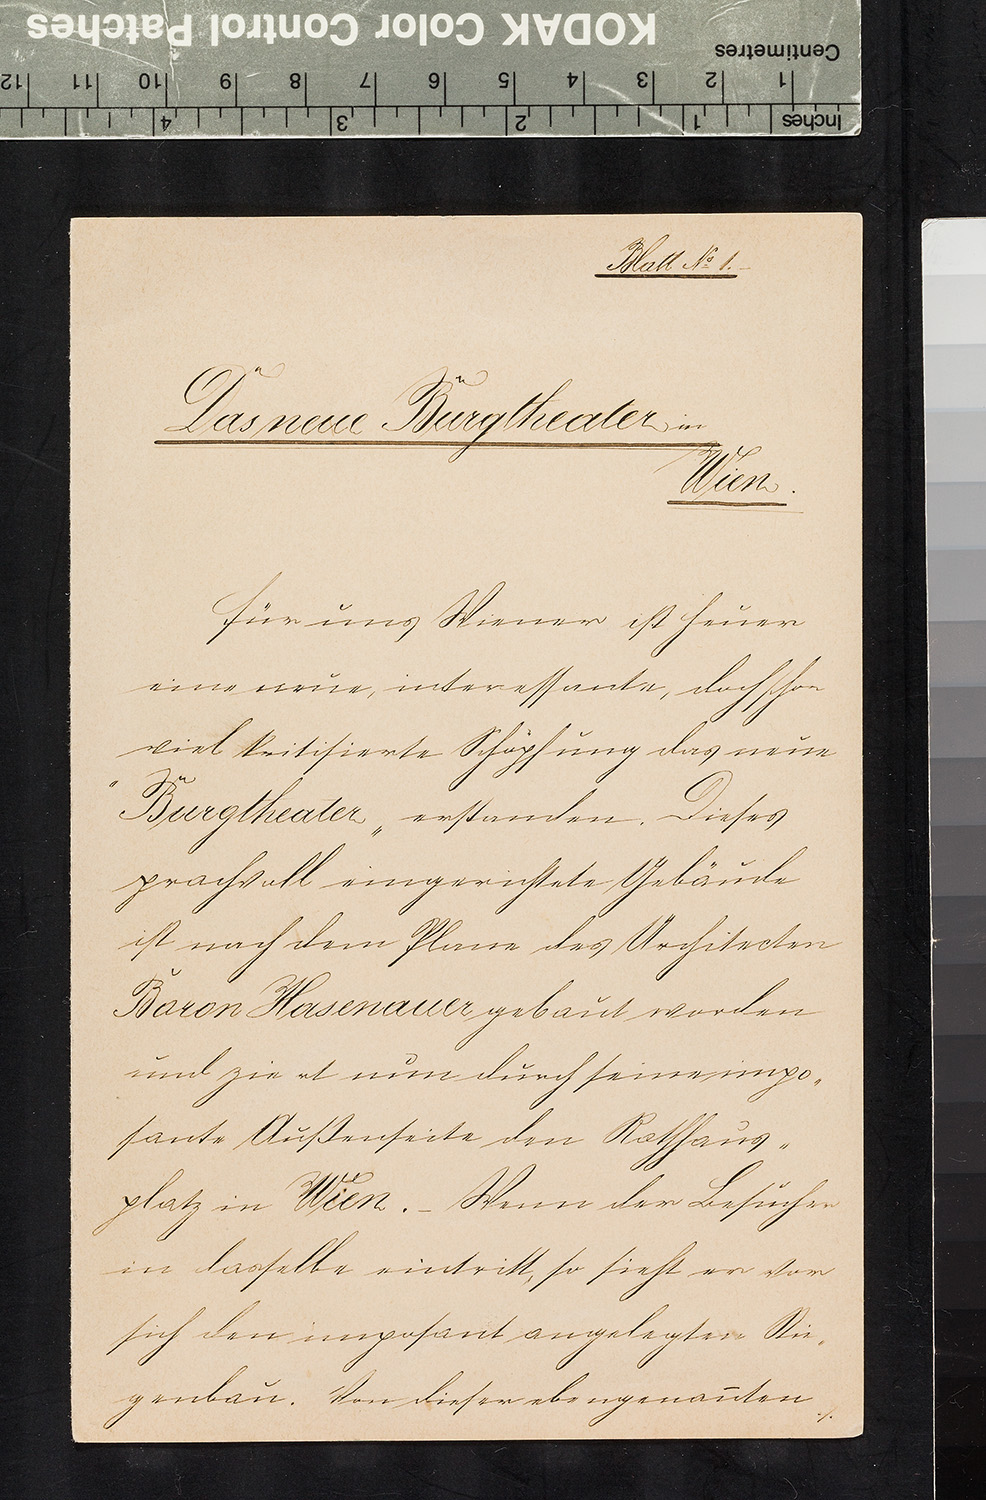 KODAK Color Control Patches
Centimetres
1 2 3 4 5 6 7 8 9 10 11 12
Inches
1 2 3 4
Blatt № 1.
Das neue Burgtheater in
Wien.
Für uns Wiener ist heuer
eine neue, interessante, doch schon
viel kritisierte Schöpfung das neue
"Burgtheater„ erstanden. Dieses
prachvoll eingerichtete Gebäude
ist nach dem Plane des Architecten
Baron Hasenauer gebaut worden
und ziert nun durch seine impo-
sante Außenseite den Rathhaus-
platz in Wien. – Wenn der Besucher
in dasselbe eintritt, so sieht er vor
sich den imposant angelegten Stie-
genbau. Von dieser ebengenan̄ten
./.